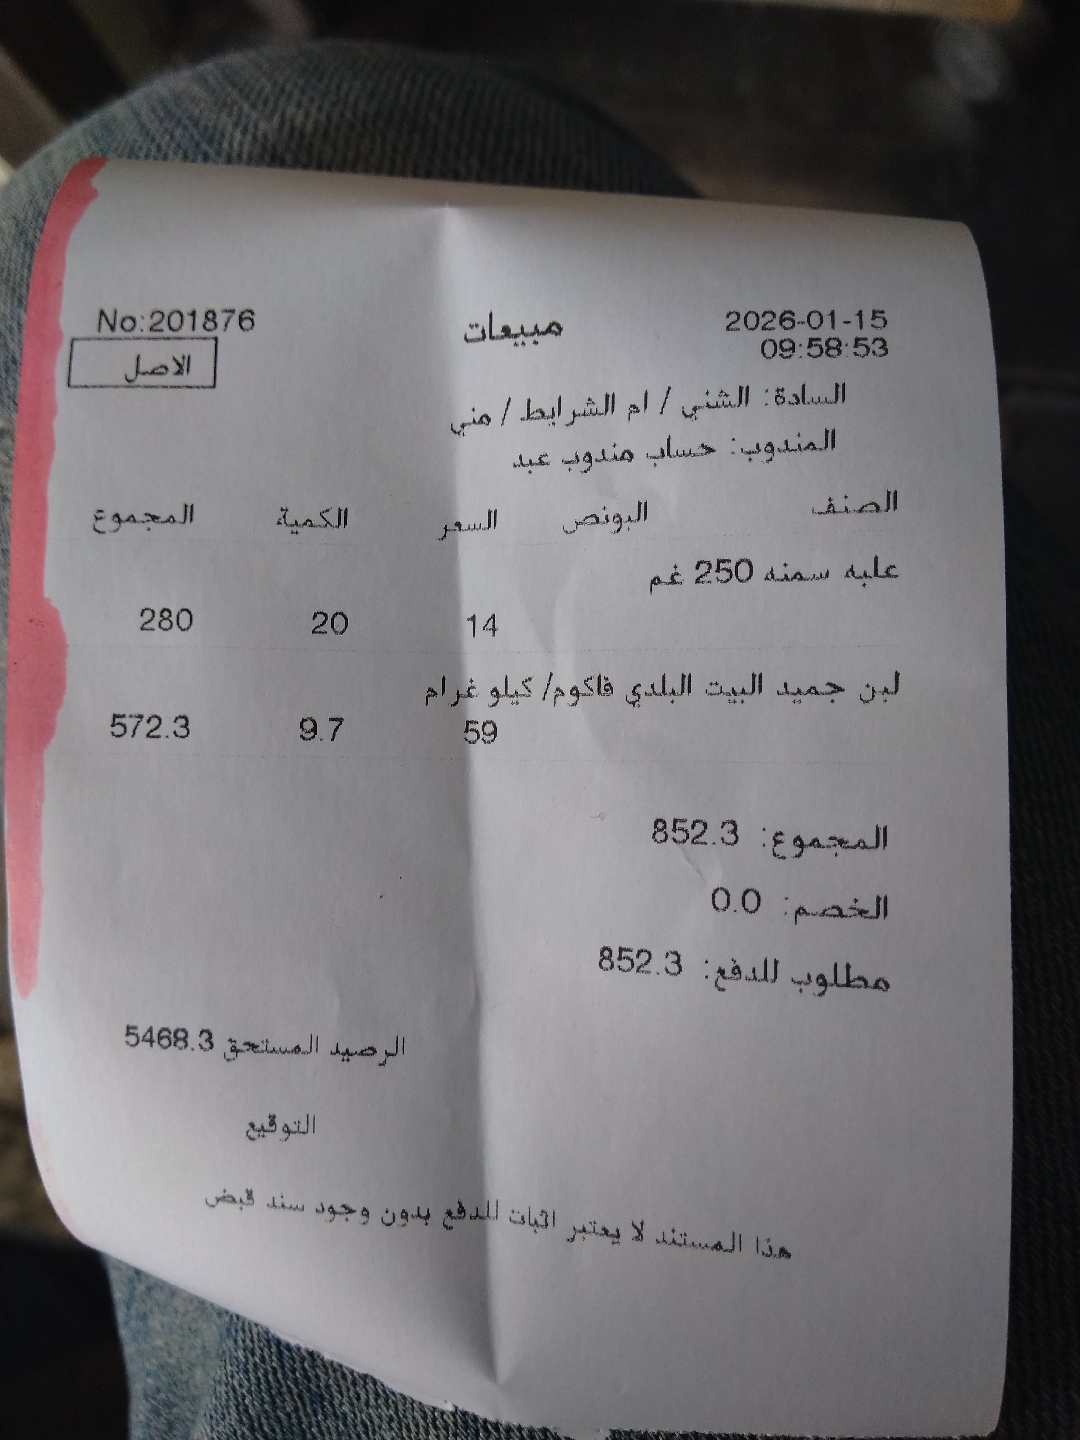 2026-01-15 مبيعات No:201876
09:58:53
الاصل
السادة: الشني / ام الشرايط / مني
المندوب: حساب مندوب عبد
الصنف البونص السعر الكمية المجموع
علبه سمنه 250 غم
14 20 280
لبن جميد البيت البلدي فاكوم/ كيلو غرام
59 9.7 572.3
المجموع: 852.3
الخصم: 0.0
مطلوب للدفع: 852.3
الرصيد المستحق 5468.3
التوقيع
هذا المستند لا يعتبر اثبات للدفع بدون وجود سند قبض